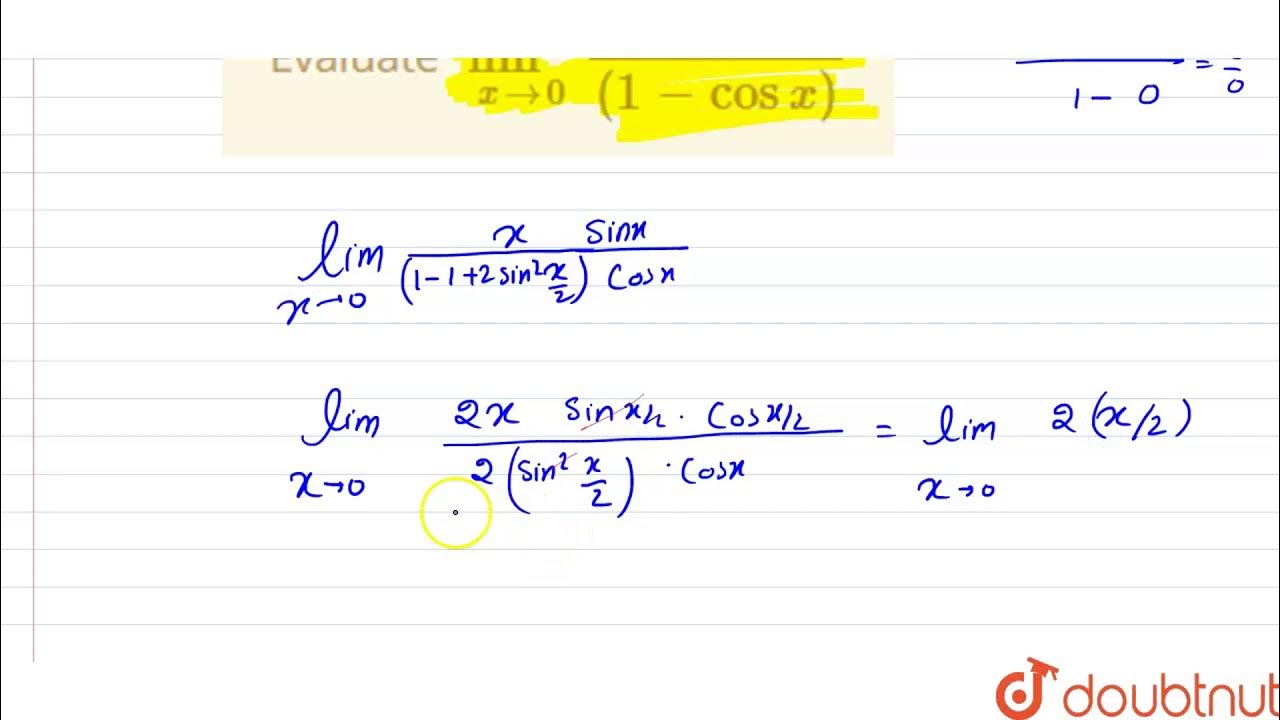 Evaluate lim x→0 (1 − cos x)
1 - 0 = 0
lim x→0 x sinx / (1-1+2sin²x/2) cosx
lim x→0 2x sinx/2 · cosx/2 / 2(sin² x/2) · cosx = lim x→0 2(x/2)
doubtnut